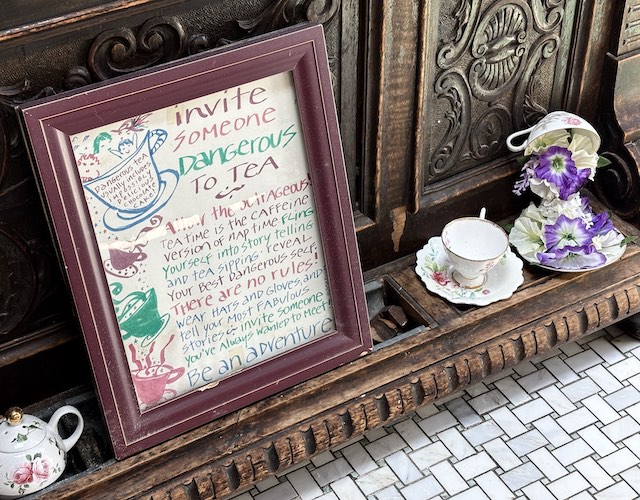 invite
someone
Dangerous
To Tea
Dangerous tea
usually includes
possibly
delicious
chocolate
cake
Allow the outrageous!
Tea time is the caffeine
version of nap time. Fling
yourself into story telling
and tea sipping. Reveal
your best dangerous self.
There are no rules!
Wear hats and gloves, and
tell your most fabulous
stories. Invite someone
you've always wanted to meet.
Be an adventure